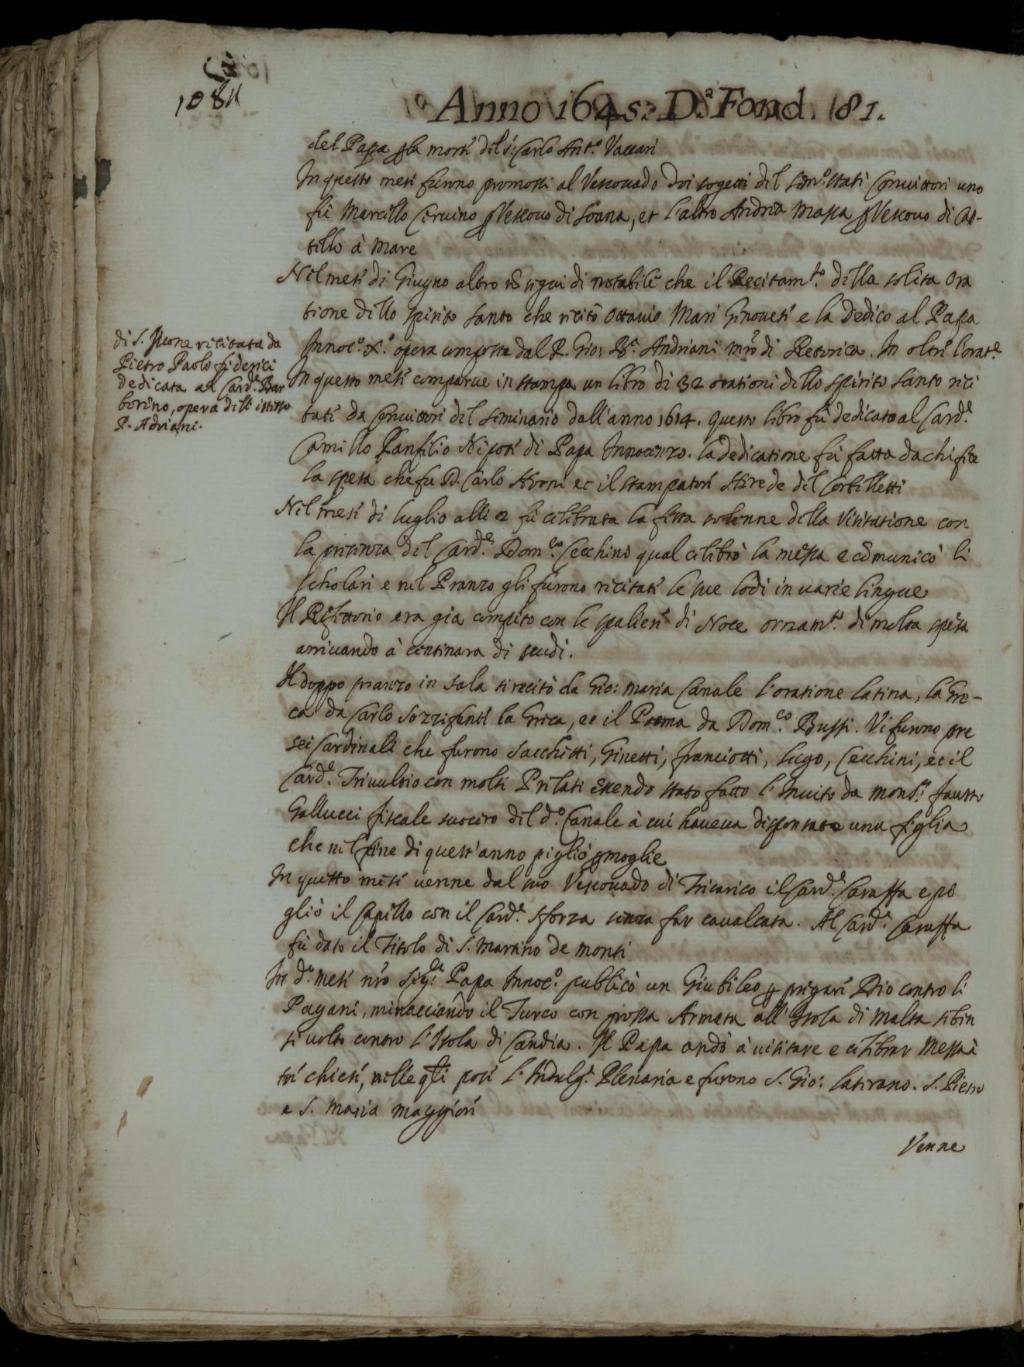 1084
Anno 1645. D. Fond. 81.
del Papa per la morte del S. Carlo Ant.o Vaccari
In questo mese furono promossi al Vescovado doi sogetti del Sem.o stati convittori uno
fù Marcello Cervino p Vescovo di Soana, et l'altro Andrea Massa p Vescovo di Ca-
stello à mare
Nel mese di Giugno altro nõ seguì di notabile che il Recitam.to della solita Ora
tione dello Spirito Santo che recitò Ottavio Mari Genovese e la dedicò al Papa
Innoc.o X.o opera composta dal P. Gio: B.a Andriani mrõ di Retorica. In oltre l'orat.e
di S. Ivone recitata da
Pietro Paolo Federici
dedicata al Card.e Bar
berino, opera dell'istesso
P. Adriani.
In questo mese comparve in stampa un libro di 32 orationi dello Spirito Santo reci
tate da convittori del seminario dall'anno 1614. questo libro fù dedicato al Card.e
Camillo Panfilio Nipote di Papa Innocenzo. la dedicatione fù fatta da chi fece
la spesa che fu D. Carlo et il stampatore herede del Corbelletti
Nel mese di luglio alli 2 fù celebrata la festa solenne della Visitatione con
la presenza del Card.e Dom.co Cecchino qual celebrò la messa e cõmunicò li
scholari e nel Pranzo gli furono recitate le sue lodi in varie lingue
Il Refettorio era già compito con le spaliere di Noce ornam.to di molta spesa
arrivando à centinara di scudi.
Il doppo pranzo in sala si recitò da Gio: Maria Canale l'oratione latina, la Gre-
ca da Carlo Sozzifanti la Greca, et il Poema da Dom.co Bussi. Vi furono pre
sei Cardinali che furono Sacchetti, Ginetti, Franciotti, Lugo, Cecchini, et il
Card.e Trivultio con molti Prelati essendo stato fatto l'Invito da Mons.re Fausto
Gallucci fiscale suocero del d.o Canale à cui haveva dispensato una figlia
che nel fine di quest'anno pigliò p moglie
In questo mese venne dal suo Vescovado di Tricarico il Card.e Caraffa e pi
gliò il Capello con il Card.e Sforza senza far cavalcata. Al Card.e Caraffa
fù dato il Titolo di S. Martino de monti
In d.o mese nrõ Sig.re Papa Innoc.o publicò un Giubileo p pregare Dio contro li
Pagani, minacciando il Turco con grossa Armata all'Isola di Malta sebin
si voltò contro l'Isola di Candia. Il Papa andò à visitare e celebrar Messa i
tre chiese, nelle qli pose l'Indulg.a Plenaria e furono S. Gio: laterano. S. Pietro
e S. Maria Maggiore
Venne